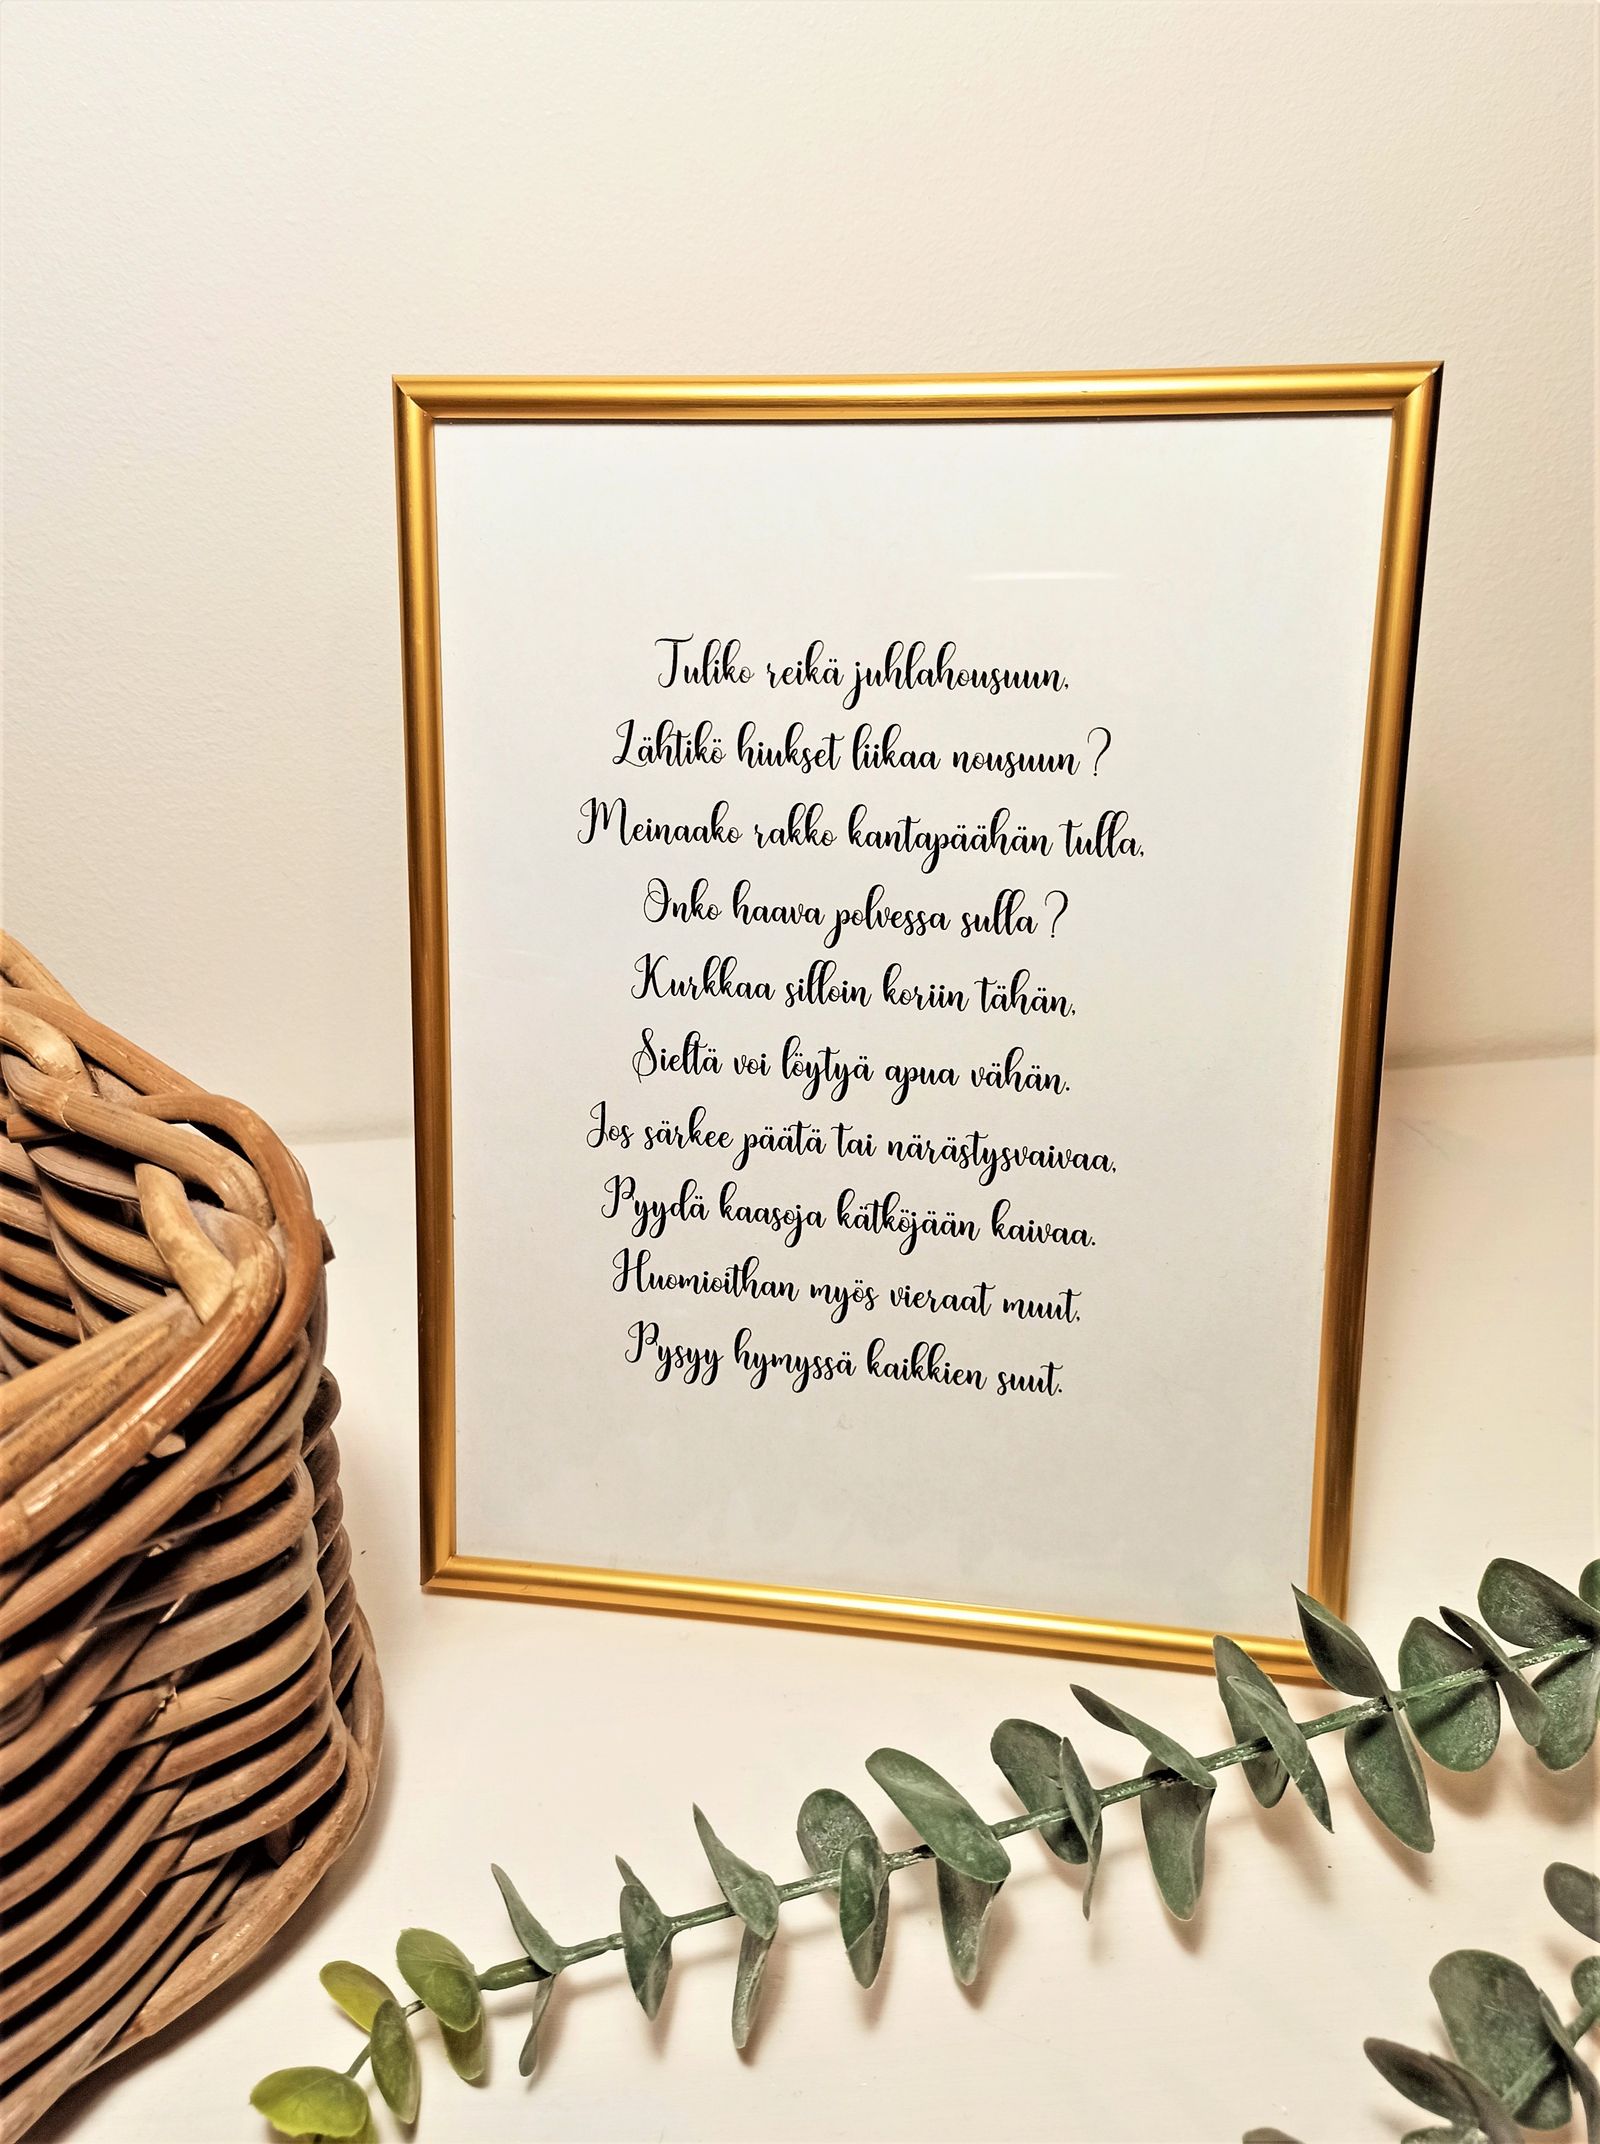 Tuliko reikä juhlahousuun,
Lähtikö hiukset liikaa nousuun?
Meinaako rakko kantapäähän tulla,
Onko haava polvessa sulla?
Kurkkaa silloin koriin tähän,
Sieltä voi löytyä apua vähän.
Jos särkee päätä tai närästysvaivaa,
Pyydä kaasoja kätköjään kaivaa.
Huomioithan myös vieraat muut,
Pysyy hymyssä kaikkien suut.